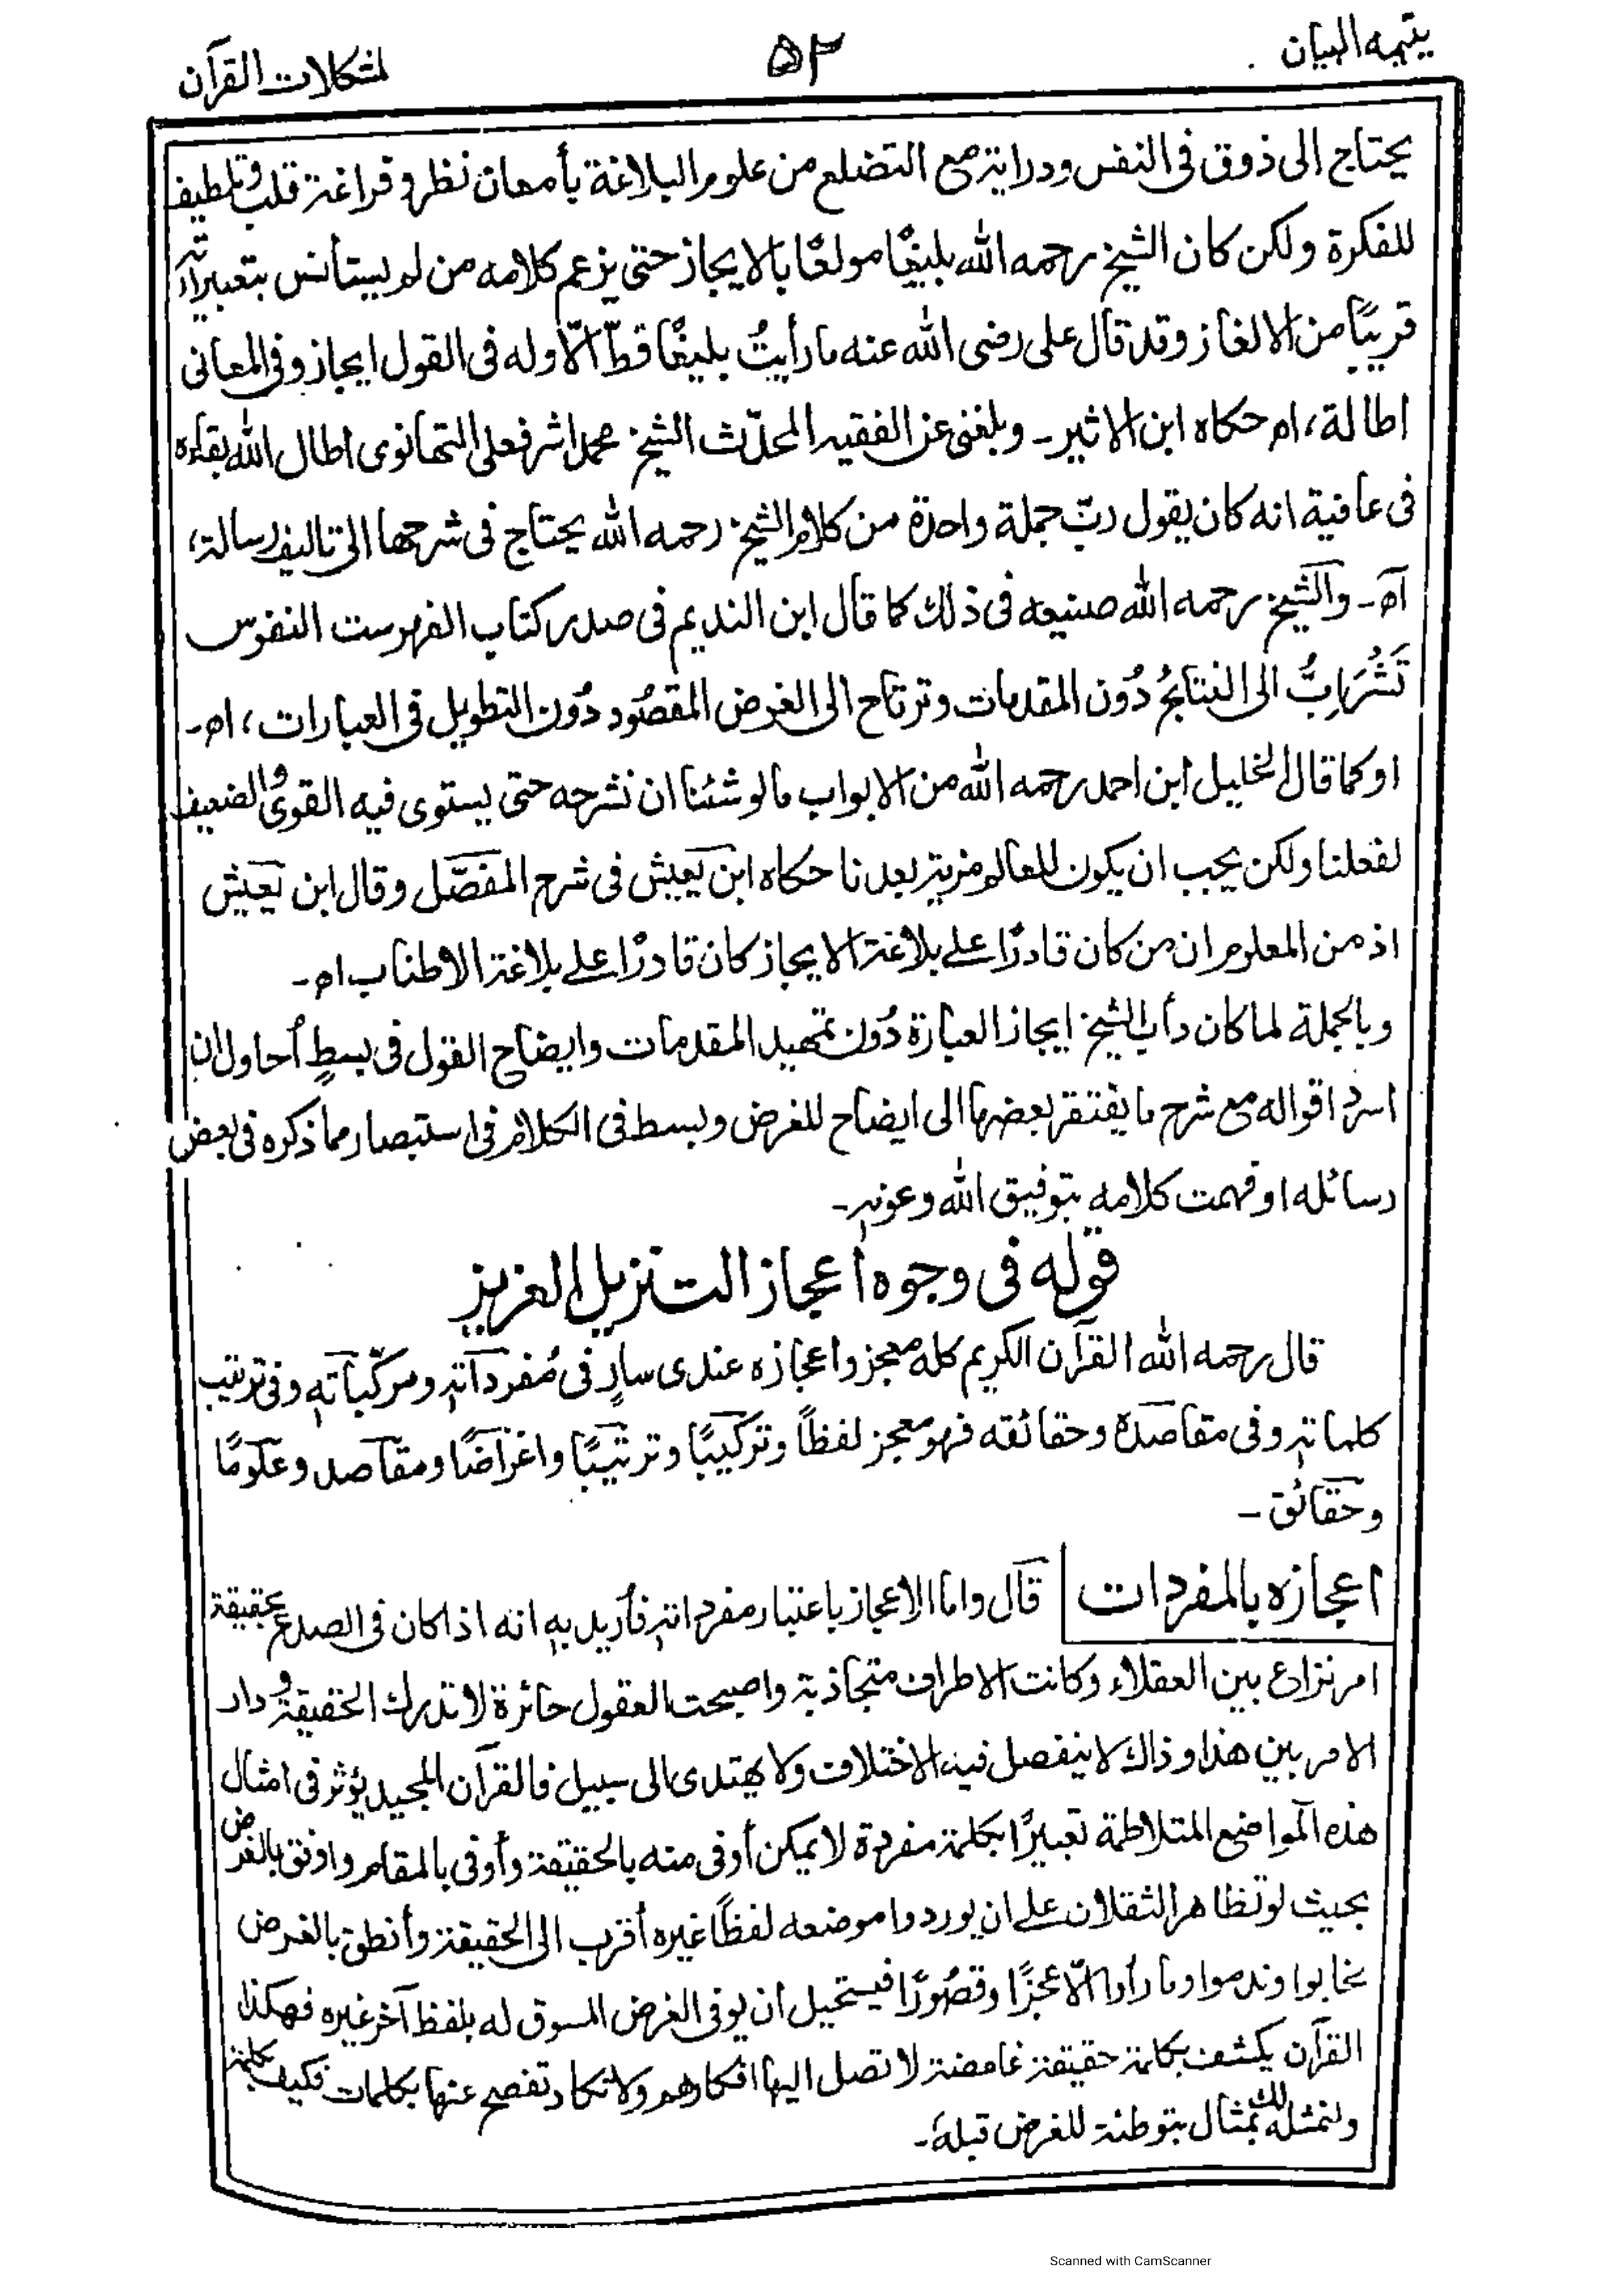 يتيمه البيان
۵۲
لمشكلات القرآن
يحتاج الى ذوق فى النفس ودراية مع التضلع من علوم البلاغة بأمعان نظر و فراغة قلب وتلطيف
للفكرة ولكن كان الشيخ رحمه الله بليغًا مولعًا بالايجاز حتى يزعم كلامه من لم يستأنس بتعبيراته
قريبًا من الالغاز وقد قال على رضى الله عنه ما رأيتُ بليغًا قطّ الّا وله فى القول ايجاز وفى المعانى
اطالة، اھ حكاه ابن الاثير ـ وبلغنى عن الفقيه المحدّث الشيخ محمد اشرفعلى التهانوى اطال الله بقاءه
فى عافية انه كان يقول ربّ جملة واحدة من كلام الشيخ رحمه الله يحتاج فى شرحها الى تاليف رسالة،
اھ ـ والشيخ رحمه الله صنيعه فى ذلك كما قال ابن النديم فى صدر كتاب الفهرست النفوس
تَشْرَئِبُّ الى النتائجُ دُون المقدمات وترتاح الى الغرض المقصُود دُون التطويل فى العبارات، اھ ـ
او كما قال الخليل ابن احمد رحمه الله من الابواب ما لو شئنا ان نشرحه حتى يستوى فيه القوى والضعيف
لفعلنا ولكن يجب ان يكون للعالم مزية بعدنا حكاه ابن يعيش فى شرح المفصّل وقال ابن يعيش
اذ من المعلوم ان من كان قادرًا على بلاغة الايجاز كان قادرًا على بلاغة الاطناب اھ ـ
وبالجملة لما كان دأب الشيخ ايجاز العبارة دُون تمهيد المقدمات وايضاح القول فى بسطٍ أحاول ان
اسرد اقواله مع شرح ما يفتقر بعضها الى ايضاح للغرض وبسط فى الكلام فى استبصار مما ذكره فى بعض
رسائله او فهمت كلامه بتوفيق الله وعونه ـ
قوله فى وجوه اعجاز التنزيل العزيز
قال رحمه الله القرآن الكريم كله معجز واعجازه عندى سارٍ فى مُفرداته ومركّباته وفى ترتيب
كلماته وفى مقاصده وحقائقه فهو معجز لفظًا وتركيبًا وترتيبًا واغراضًا ومقاصد وعلومًا
وحقائق ـ
اعجازه بالمفردات
قال واما الاعجاز باعتبار مفرداته فأريد به انه اذا كان فى الصدع بحقيقة
امر نزاع بين العقلاء وكانت الاطراف متجاذبة واصبحت العقول حائرة لا تدرك الحقيقة ودار
الامر بين هذا و ذاك لا ينفصل فيه الاختلاف ولا يهتدى الى سبيل فالقرآن المجيد يؤثر فى امثال
هذه المواضع المتلاطمة تعبيرًا بكلمة مفردة لا يمكن أوفى منه بالحقيقة وأوفى بالمقام واوفق بالغرض
بحيث لو تظاهر الثقلان على ان يوردوا موضعه لفظًا غيره أقرب الى الحقيقة وأنطق بالغرض
خابوا وندموا وما رأوا الّا عجزًا وقصُورًا فيستحيل ان يوفى الغرض المسوق له بلفظ آخر غيره فهكذا
القرآن يكشف بكلمة حقيقة غامضة لا تصل اليها افكارهم ولا تكاد تفصح عنها بكلمات فكيف بكلمة
ولنمثله لك بمثال بتوطئة للغرض قبله ـ
Scanned with CamScanner